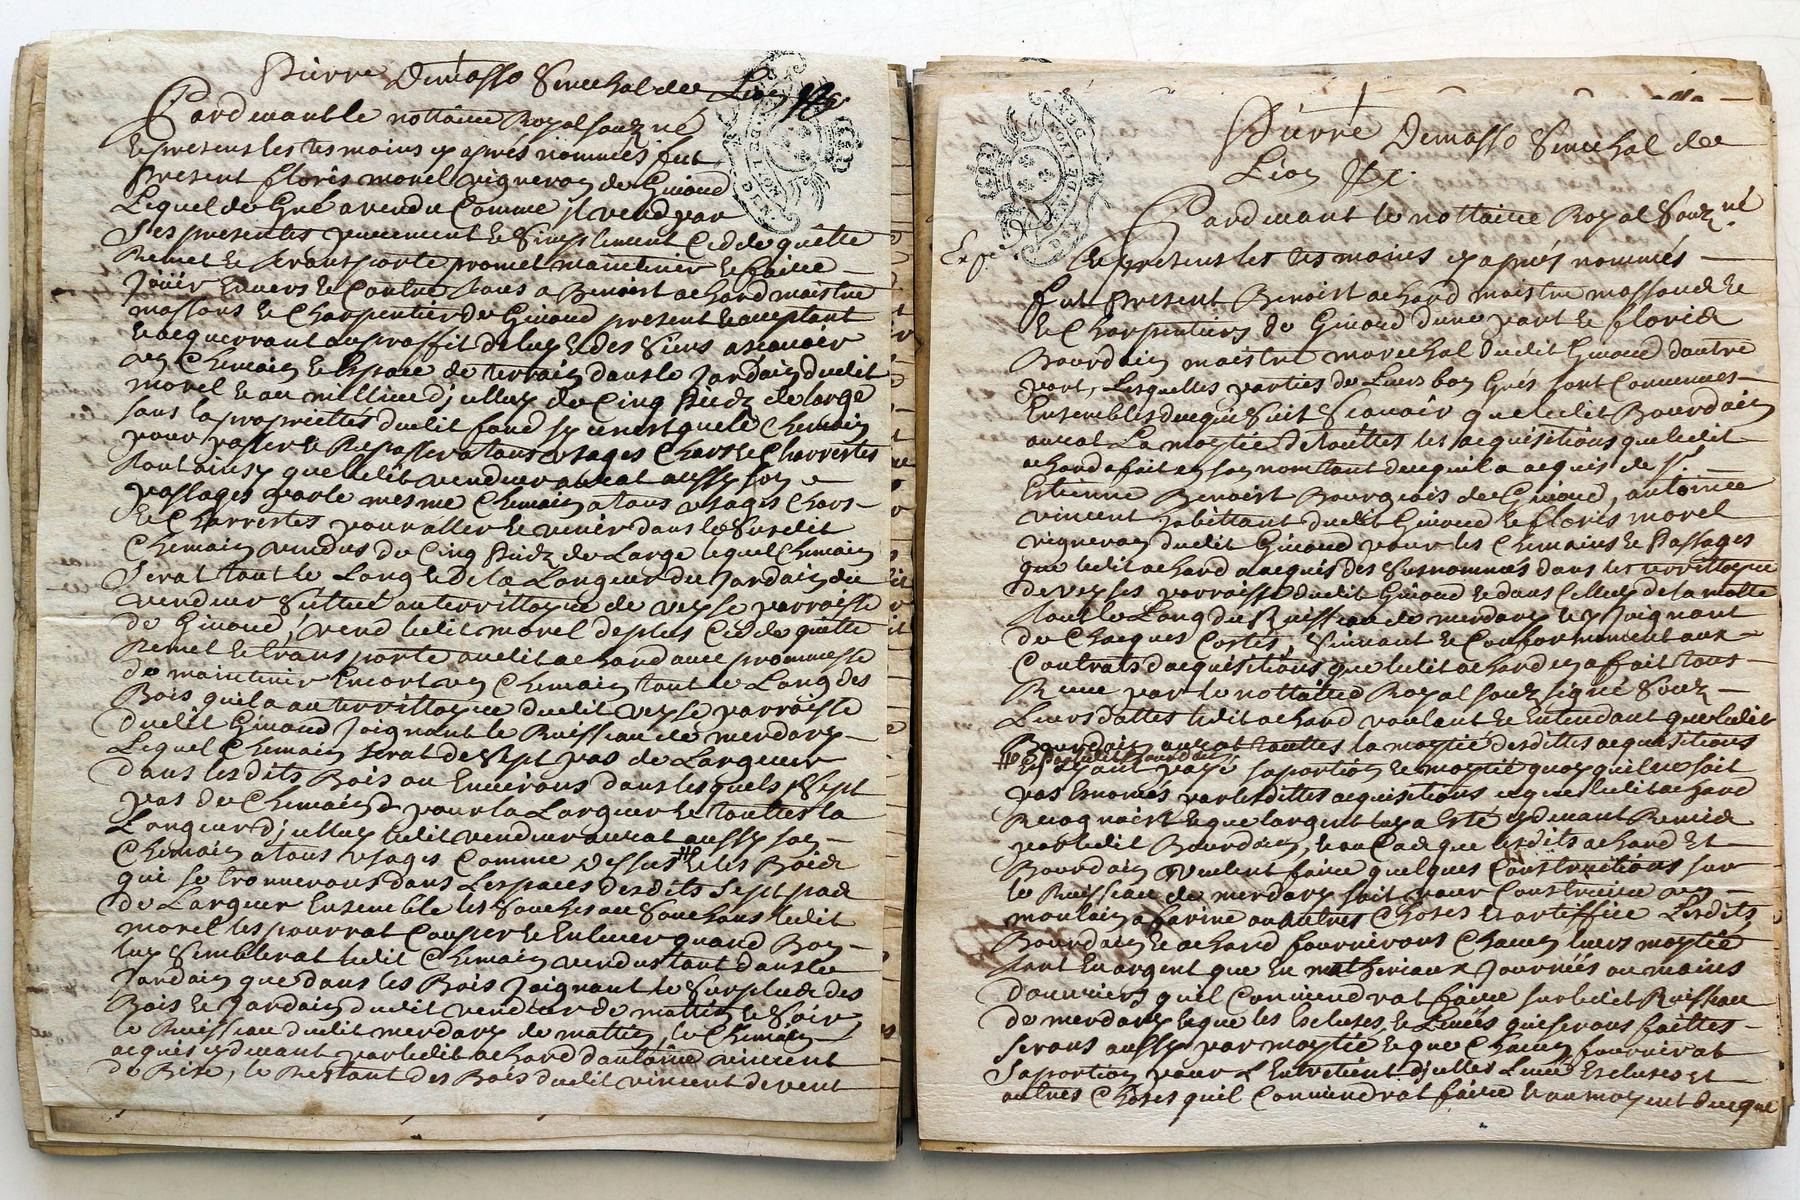 Pierre Demasso Senechal de Lion &c
Pardevant le nottaire Royal souz né
Et presens les tesmoins cy aprés nommés fut
present floris morel vigneron de Givord
Lequel de gré a vendu Comme jl vend par
Ses presentes purement et Simplement Cedde quitte
Remet et transporte promet maintenir et faire
Jöuir Envers et Contre tous a Benoist achard maistre
massons et Charpentier de Givord present Et aceptant
et acquerrant au proffit de luy Et des Siens ascavoir
un Chemain Et Espace de terrain dans le Jardain dudit
morel Et au millieu d'jcelluy de Cinq pieds de large
sans la proprietté dudit fond sy ce nest que le Chemain
pour passer et Repasser a tous usages Chars et Charrettes
tout ainsy que ledit vendeur aurat aussy son
passages par le mesme Chemain a tous usages Chars
et Charrettes pour aller et venir dans le Susdit
Chemain vendus de Cinq pieds de Large lequel Chemain
Serat tout le Long Et de la Longueur du Jardain du
vendeur Scitué au territtoyre de veyse parroisse
de Givord, vend ledit morel de plus Cedde quitte
Remet et transporte audit achard avec prommesse
de maintenir Encort un Chemain tout le Long des
Bois quil a au territtoyre dudit veyse parroisse
dudit Givord Joignant le Ruisseau de merdary
Lequel Chemain serat de Sept pas de Largueur
dans lesdits Bois au Environs dans lesquels Sept
pas de Chemain pour la Largueur et toutte la
Longueur d'jcelluy ledit vendeur aurat aussy son
Chemain a tous usages Comme dessus et les Bois
qui se trouverons dans Lespaces desdits Sept pas
de Largueur Ensemble les Souches ou Souchons ledit
morel les pourrat Couper et Enlever quand Bon
luy Semblerat ledit Chemain vendus tant dans le
Jardain que dans les Bois Joignant le Surplus des
Bois et Jardain dudit vendeur de mattin et Soir
le Ruisseau dudit merdary de mattin, le Chemain
acquis cy devant par ledit achard d'antoine vincent
de Bize, le Restant des Bois dudit vincent de vent
Pierre Demasso Senechal de
Lion &c.
Pardevant le nottaire Royal Souz né
Exp.
Et presens les tesmoins cy aprés nommés
fut present Benoist achard maistre massons et
et Charpentiers de Givord dune part et floris
Bourdain maistre marechal dudit Givord dautre
part, Lesquelles parties de Leurs bon Grés sont Convenues
Ensembles de ce qui Suit Scavoir que ledit Bourdain
aurat La moytié de touttes les acquisitions que ledit
achard a fait en son nom tant de ce quil a acquis de Sr.
Estienne Benoist Bourgeois de Givord, antoine
vincent habittant dudit Givord et floris morel
vigneron dudit Givord pour les Chemains et Passages
que ledit achard a acquis des susnommés dans les territtoyre
de veyses parroisse dudit Givord Et dans celluy de la motte
tout le Long du Ruisseau de merdary et y Joignant
de Chacques Costés, Suivant et Conformement aux
Contrats dacquisitions que ledit achard en a fait tous
Reçue par le nottaire Royal souz signé Souz
Leurs dattes ledit achard voulant et Entendant que ledit
Bourdain aurat touttes la moytié desdittes acquisitions
par ledit Bourdain
En ayant payé sa portion et moytié quoy quil ne soit
pas Enommés par lesdittes acquisitions ce que ledit achard
Recognoist Et que largent luy a Esté cy devant Remis
par ledit Bourdain, et au Cas que lesdits achard Et
Bourdain veulent faire quelques Constructions sur
le Ruisseau de merdary soit pour Construire un
moulain a farine ou autres Choses Et artiffice Lesdits
Bourdain Et achard fourniront Chacun leurs moytié
tant En argent que En matheriaux Journées ou mains
d'ouvriers quil Conviendrat faire sur ledit Ruisseau
de merdary Et que les Escluses, et Levées qui serons faittes
serons aussy par moytié Et que Chacun fournirat
Sa portion pour L'Entretient d'jcelles Levée Escluses Et
autres Choses quil Conviendrat faire Et au moyent de ce que